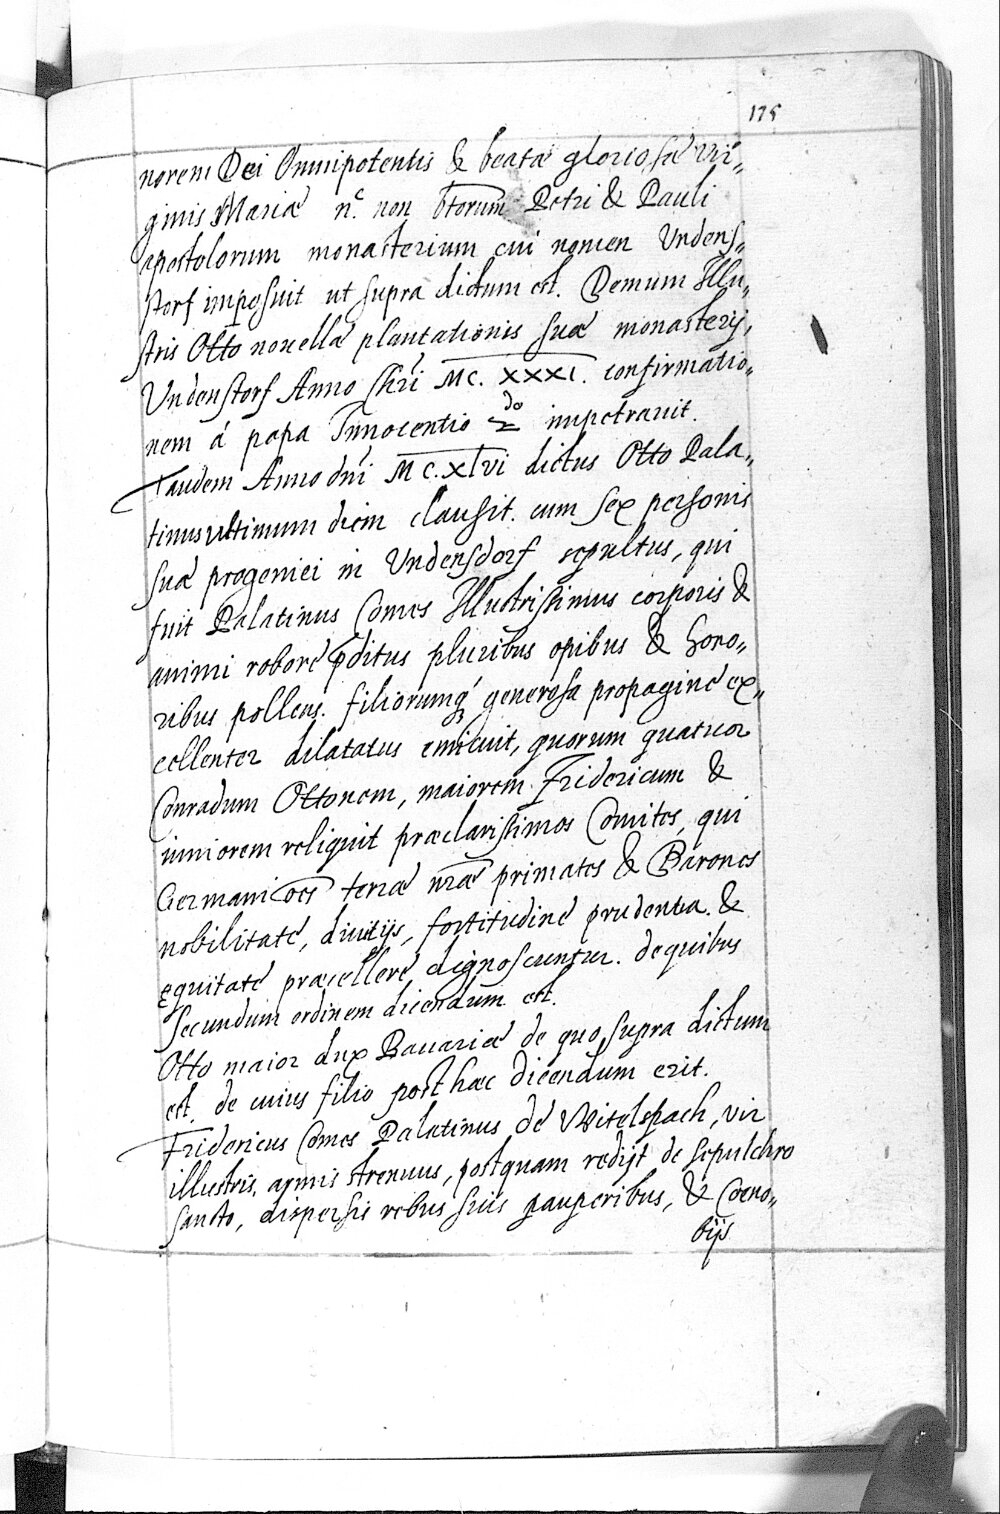 175
norem Dei Omnipotentis & beatæ gloriosæ vir„
ginis Mariæ n.c non btorum Petri & Pauli
apostolorum monasterium cui nomen Undens„
storf imposuit ut supra dictum est. Demum Illu„
stris Otto nouellæ plantationis suæ monasterij,
Undenstorf Anno Chri MC. XXXI. confirmatio„
nem á papa Innocentio 2do impetrauit.
Tandem Anno dni MC.XLVI dictus Otto Pala„
tinus ultimum diem clausit. cum sex personis
suæ progeniei in Undensdorf sepultus, qui
fuit Palatinus Comes Illustrissimus corporis &
animi robore pditus pluribus opibus & hono„
ribus pollens. filiorumq́ generosa propagine ex„
cellenter dilatatus emicuit, quorum quatuor
Conradum Ottonem, maiorem Fridericum &
iuniorem reliquit præclarissimos Comites, qui
Germani oēs terræ nræ primates & Barones
nobilitate, diuitijs, fortitudine prudentia. &
ęquitate præcellere dignoscuntur. de quibus
secundum ordinem dicendum est.
Otto maior dux Bauariæ de quo supra dictum
est. de cuius filio post hæc dicendum erit.
Fridericus Comes Palatinus de Witelspach, vir
illustris, armis strenuus, postquam redijt de sepulchro
sancto, dispersis rebus suis pauperibus, & Coeno„
bijs